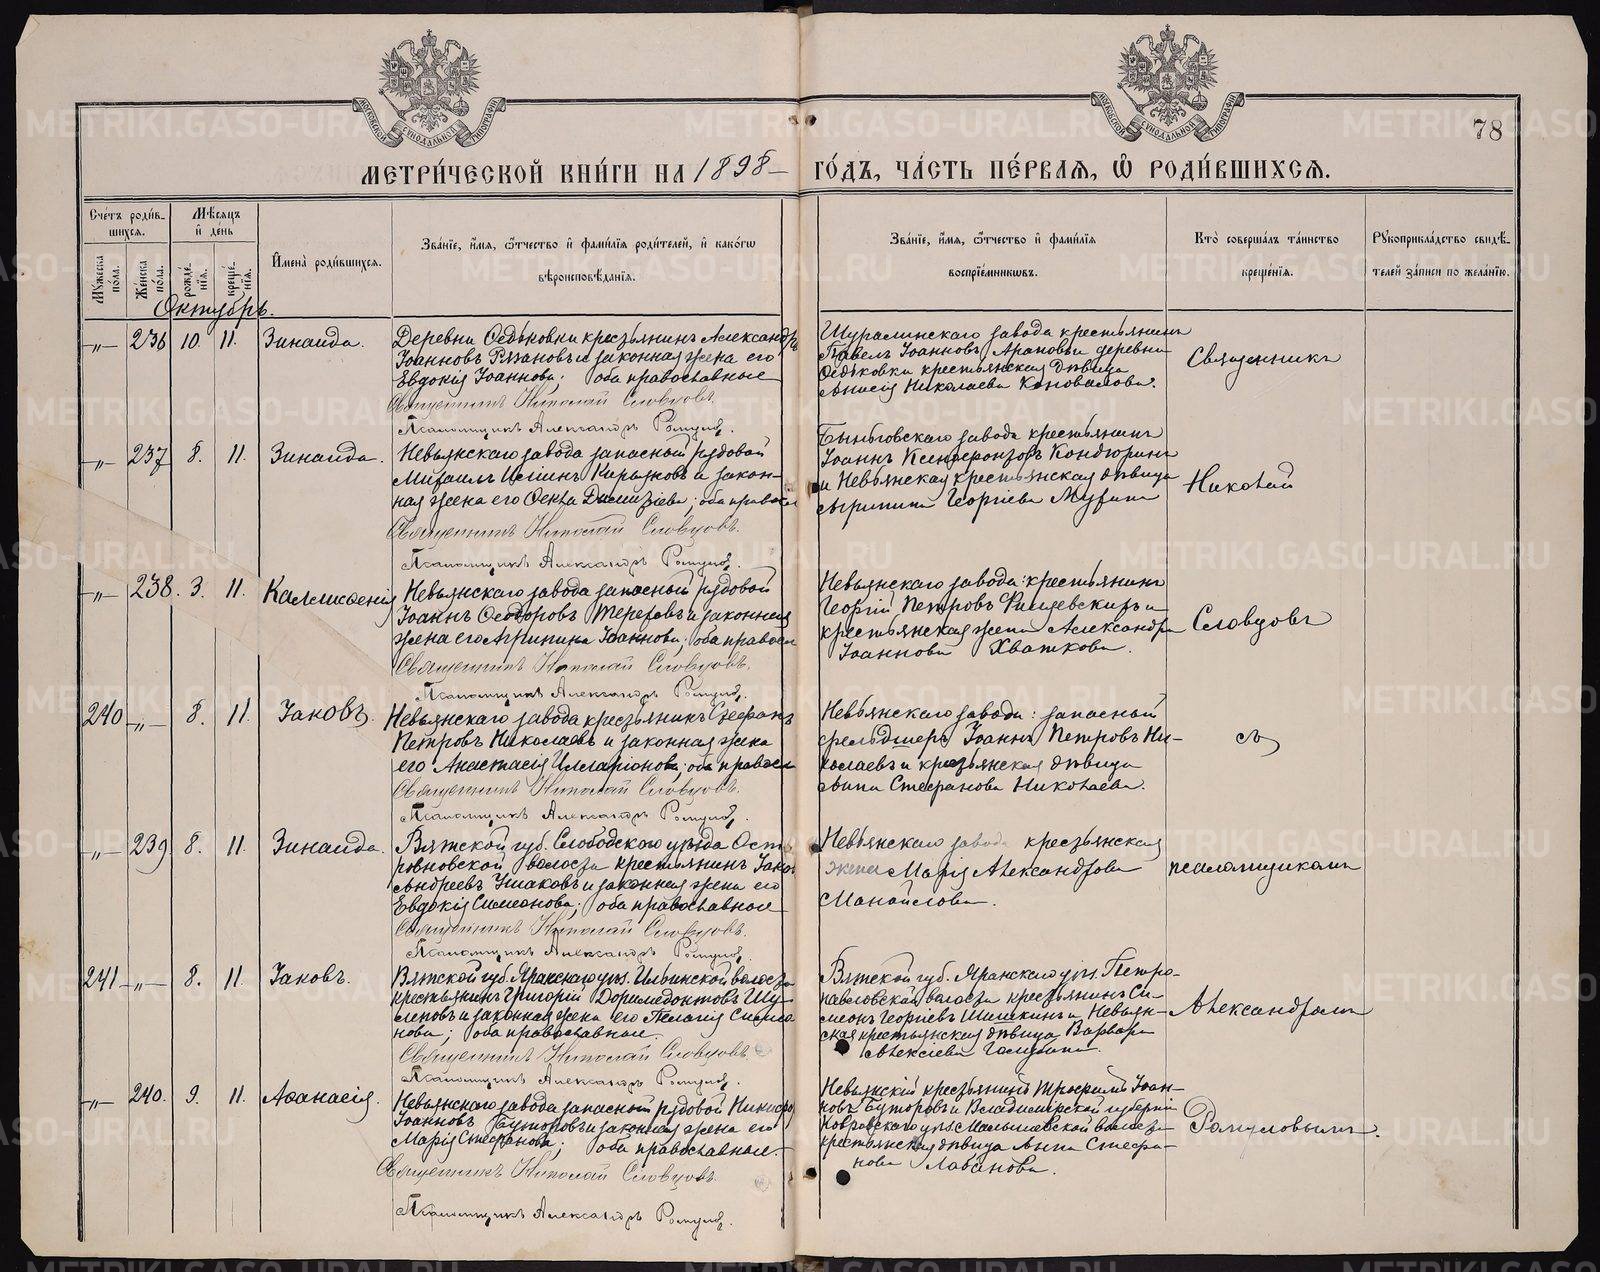 78
МЕТРИ́ЧЕСКОЙ КНИ́ГИ НА 1898 ГО́ДЪ, ЧА́СТЬ ПЕ́РВАЯ, Ѿ РОДИ́ВШИХСЯ.
Сче́тъ роди́в-
шихся.
Мꙋ́жеска по́ла.
Же́нска по́ла.
Мѣ́сяцъ и҆ де́нь
рожде́нїя.
креще́нїя.
И҆мена̀ роди́вшихся.
Зва́нїе, и҆́мя, ѻ҆́тчество и҆ фами́лїя роди́телей, и҆ како́гѡ
вѣроисповѣ́данїя.
Зва́нїе, и҆́мя, ѻ҆́тчество и҆ фами́лїя
воспрїе́мникѡвъ.
Кто̀ соверша́лъ та́инство
креще́нїя.
Рꙋкоприкла́дство свидѣ́-
телей за́писи по жела́нїю.
Октябрь.
-„- 236 10. 11. Зинаида.
Деревни Ѳедьковки крестьянинъ Александръ
Іоанновъ Рязановъ и законная жена его
Евдокія Іоаннова; оба православные
Священникъ Николай Словцовъ.
Псаломщикъ Александръ
Шуралинскаго завода крестьянинъ
Павелъ Іоанновъ Араповъ и деревни
Ѳедьковки крестьянская дѣвица
Анисія Николаева Коновалова.
Священникъ
-„- 237 8. 11. Зинаида.
Невьянскаго завода запасный рядовой
Михаилъ и закон-
ная жена его оба правосл
Священникъ Николай Словцовъ.
Псаломщикъ Александръ
Быньговскаго завода крестьянинъ
Іоаннъ Ксенофонтовъ Кондюринъ
и Невьянская крестьянская дѣвица
Георгіева
Николай
-„- 238. 3. 11. Каллисѳенія
Невьянскаго завода запасный рядовой
Іоаннъ Ѳеодоровъ Тереховъ и законная
жена его Агрипина Іоаннова; оба правосл
Священникъ Николай Словцовъ.
Псаломщикъ Александръ
Невьянскаго завода: крестьянинъ
Георгій Петровъ и
крестьянская жена Александра
Іоаннова Хваткова.
Словцовъ
240 -„- 8. 11. Іаковъ.
Невьянскаго завода крестьянинъ Стефанъ
Петровъ Николаевъ и законная жена
его Анастасія Илларіонова; оба правосл
Священникъ Николай Словцовъ.
Псаломщикъ Александръ
Невьянскаго завода: запасный
фельдшеръ Іоаннъ Петровъ Ни-
колаевъ и крестьянская дѣвица
Анна Стефанова Николаева.
съ
-„- 239 8. 11. Зинаида.
Вятской губ. Слободского уѣзда Ост
ровновской волости крестьянинъ Іако
Андреевъ Ушаковъ и законная жена его
Евдокія Симеонова; оба православные
Священникъ Николай Словцовъ.
Псаломщикъ Александръ
Невьянскаго завода крестьянская
жена Марія Александрова
Манойлова.
псаломщикомъ
241 -„- 8. 11. Іаковъ.
Вятской губ. Яранскаго уѣз. Ильинской волости
крестьянинъ Григорій Доримедонтовъ Шу-
леповъ и законная жена его Пелагія Симео
нова; оба православные.
Священникъ Николай Словцовъ.
Псаломщикъ Александръ
Вятской губ. Яранскаго уѣз. Петро-
павловской волости крестьянинъ Си-
меонъ Георгіевъ Шишкинъ и Невьян-
ская крестьянская дѣвица Варвара
Алексіева
Александромъ
-„- 240. 9. 11. Аѳанасія.
Невьянскаго завода запасный рядовой Никифоръ
Іоанновъ Буторовъ и законная жена его
Марія Стефанова; оба православные.
Священникъ Николай Словцовъ.
Псаломщикъ Александръ
Невьянскій крестьянинъ Трофимъ Іоан-
новъ Буторовъ и Владимирской губерніи
Ковровскаго уѣз. волости
крестьянская дѣвица Анна Стефа-
нова Лабанова.